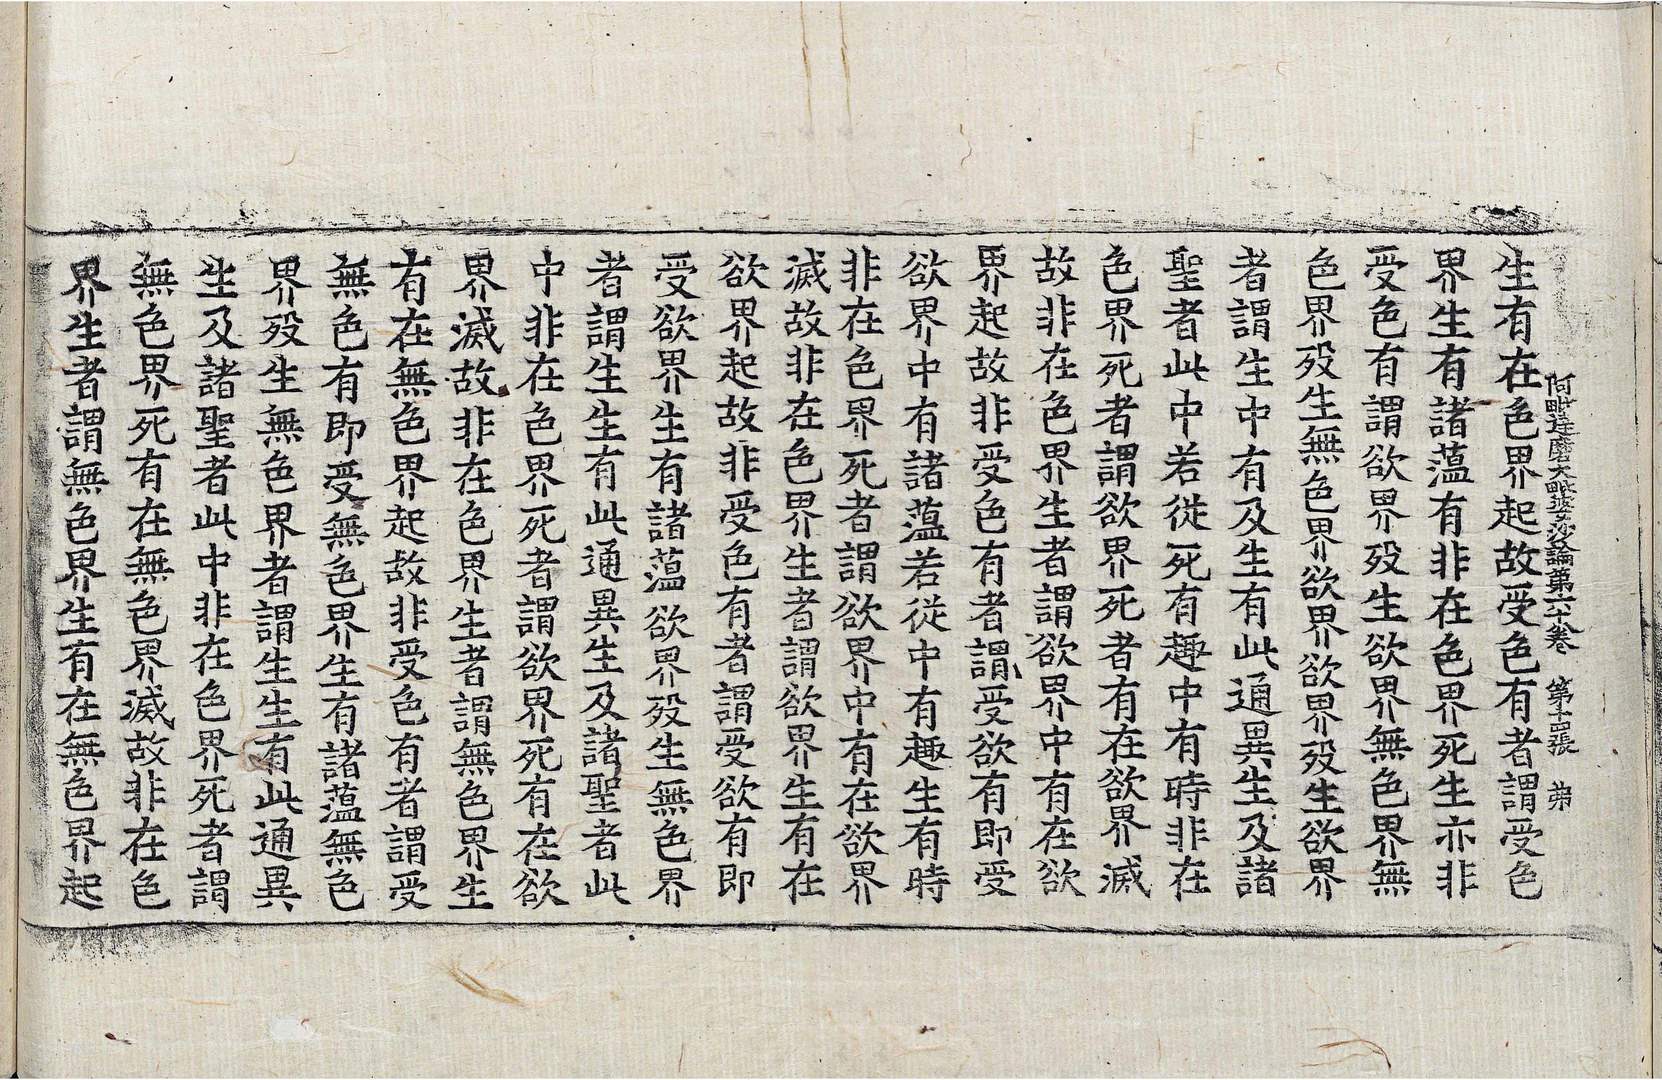 阿毗達磨大毗婆沙論第六十卷 第十四張 弟
生有在色界起故受色有者謂受色
界生有諸蘊有非在色界死生亦非
受色有謂欲界歿生欲界無色界無
色界歿生無色界欲界欲界歿生欲界
者謂生中有及生有此通異生及諸
聖者此中若從死有趣中有時非在
色界死者謂欲界死者有在欲界滅
故非在色界生者謂欲界中有在欲
界起故非受色有者謂受欲有即受
欲界中有諸蘊若從中有趣生有時
非在色界死者謂欲界中有在欲界
滅故非在色界生者謂欲界生有在
欲界起故非受色有者謂受欲有即
受欲界生有諸蘊欲界歿生無色界
者謂生生有此通異生及諸聖者此
中非在色界死者謂欲界死有在欲
界滅故非在色界生者謂無色界生
有在無色界起故非受色有者謂受
無色有即受無色界生有諸蘊無色
界歿生無色界者謂生生有此通異
生及諸聖者此中非在色界死者謂
無色界死有在無色界滅故非在色
界生者謂無色界生有在無色界起